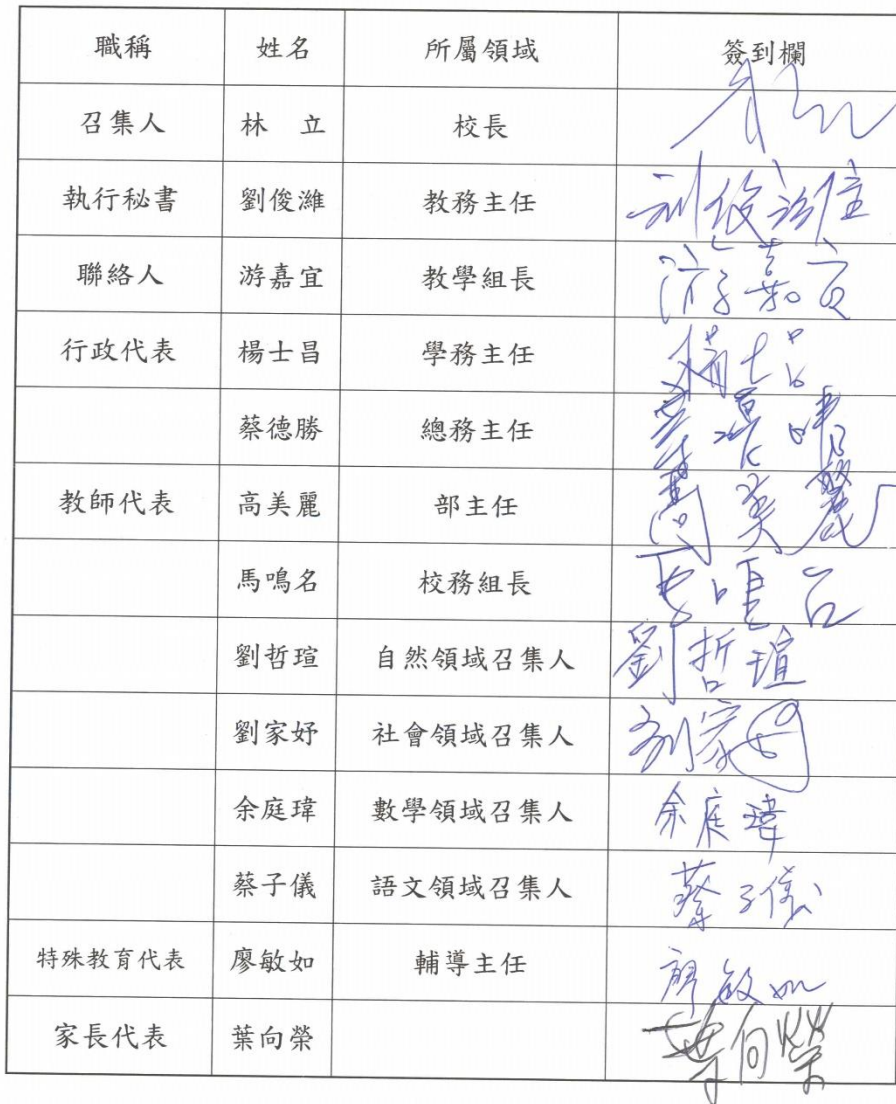 職稱 姓名 所屬領域 簽到欄
召集人 林 立 校長
執行秘書 劉俊濰 教務主任 刘俊濰
聯絡人 游嘉宜 教學組長 游嘉宜
行政代表 楊士昌 學務主任 楊士昌
蔡德勝 總務主任 蔡德勝
教師代表 高美麗 部主任 高美麗
馬鳴名 校務組長 馬鳴名
劉哲瑄 自然領域召集人 劉哲瑄
劉家妤 社會領域召集人 劉家妤
余庭瑋 數學領域召集人 余庭瑋
蔡子儀 語文領域召集人 蔡子儀
特殊教育代表 廖敏如 輔導主任 廖敏如
家長代表 葉向榮 葉向榮